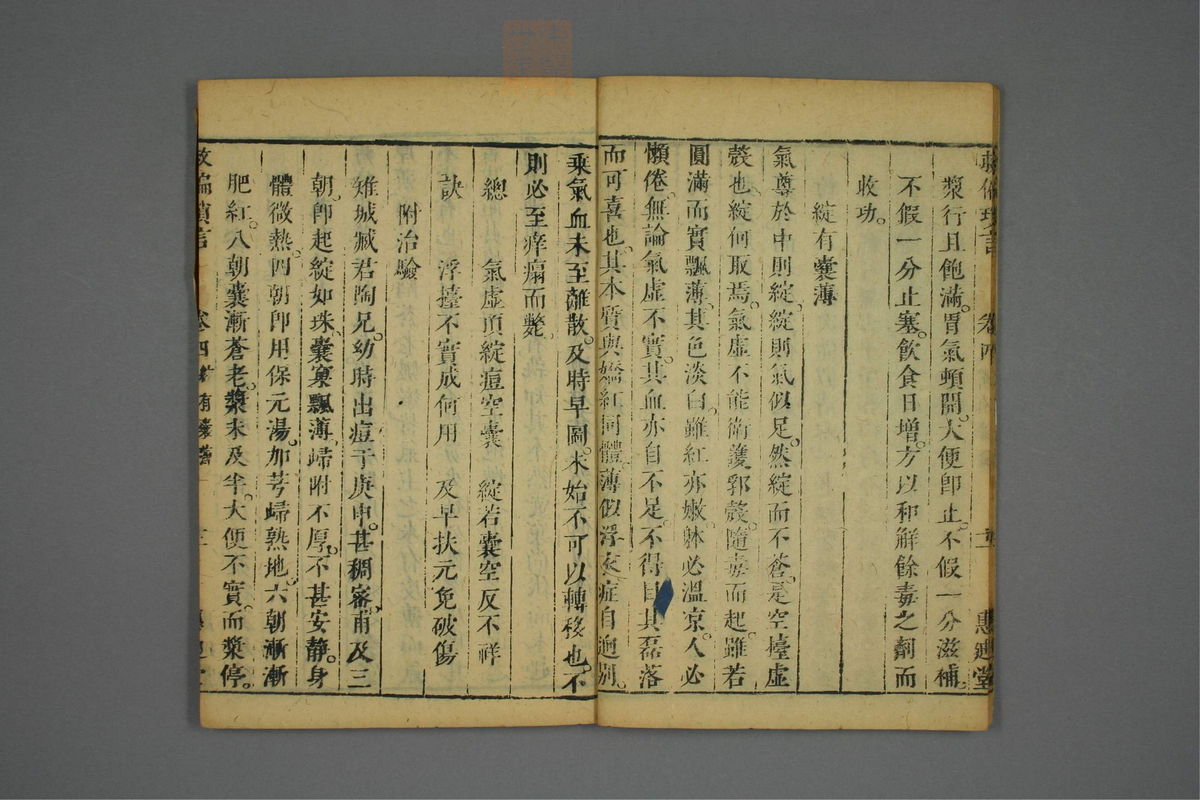 漿行且飽滿。胃氣頓開。大便即止。不假一分滋補。
不假一分止塞。飲食日增。方以和解餘毒之劑而
收功。
綻有囊薄
氣尊於中則綻。綻則氣似足。然綻而不蒼。是空擡虛
殼也。綻何取焉。氣虛不能衛護郭殼。隨毒而起。雖若
圓滿而實飄薄。其色淡白。雖紅亦嫩。躰必溫凉。人必
懶倦。無論氣虛不實。其血亦自不足。不得目其磊落
而可喜也。其本質與嬌紅同體。薄似浮衣。症自逈别。
乘氣血未至離散。及時早圖。未始不可以轉移也。不
則必至痒塌而斃。
總 氣虛頂綻痘空囊 綻若囊空反不祥
訣 浮擡不實成何用 及早扶元免破傷
附治驗
雉城臧君陶兄。幼時出痘于庚申。甚稠密。甫及三
朝。即起綻如珠。囊窠飄薄。歸附不厚。不甚安靜。身
體微熱。四朝即用保元湯。加芎歸熟地。六朝漸漸
肥紅。八朝囊漸蒼老。漿未及半。大便不實。而漿停。
卷四 綻有囊薄